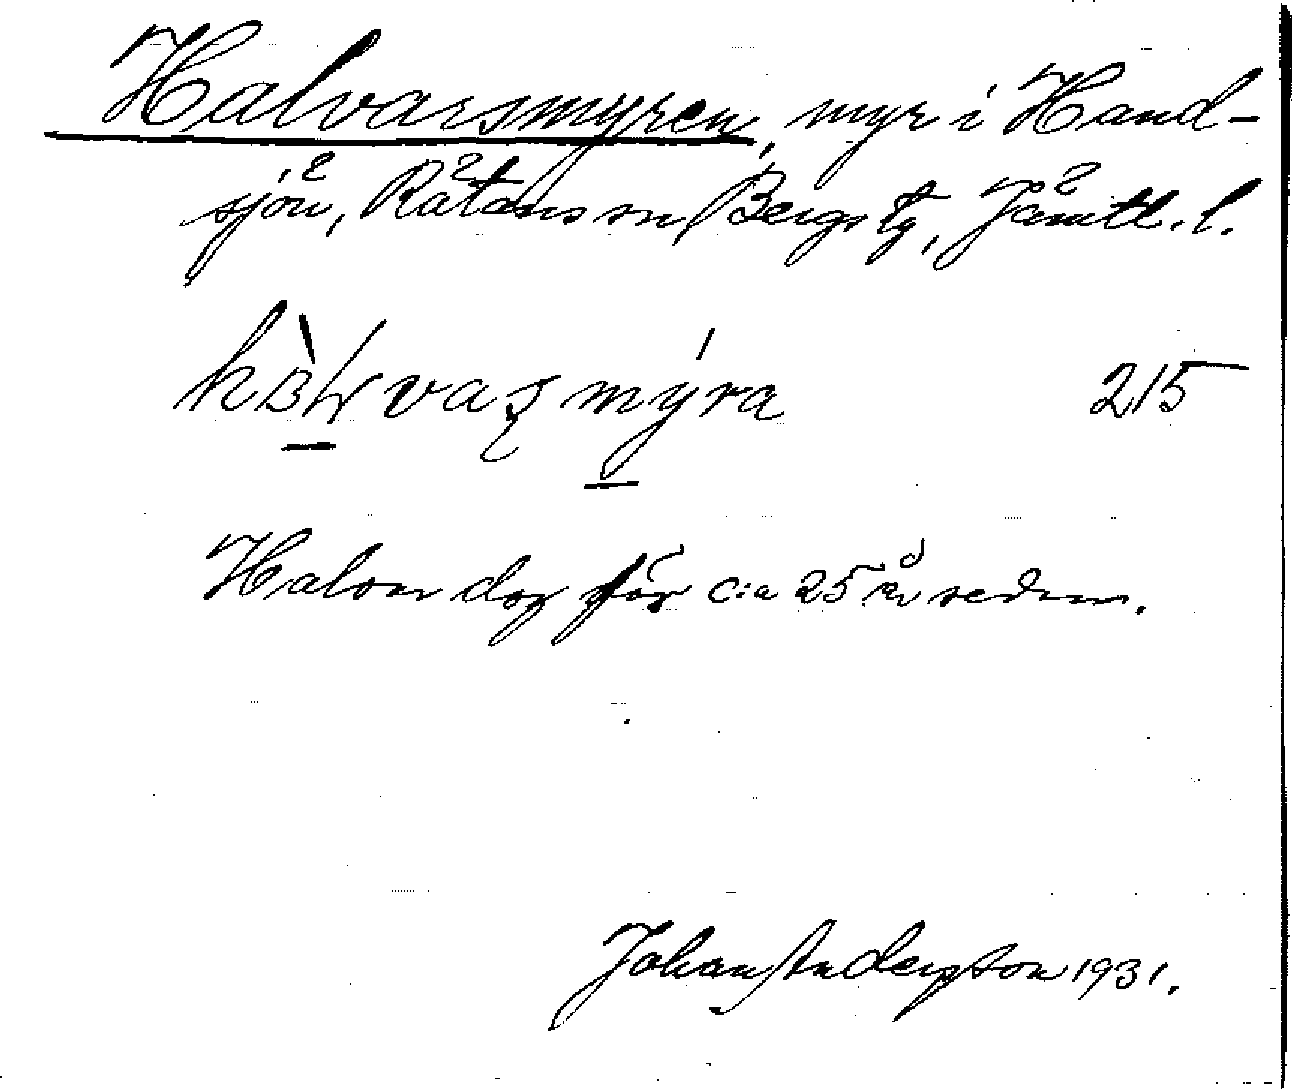 Halvarsmyren, myr i Hand-
sjön, Rätans sn, Bergs tg, Jämtl. l.
215
Halvar dog för c:a 25 år sedan.
Johan Anderson 1931.